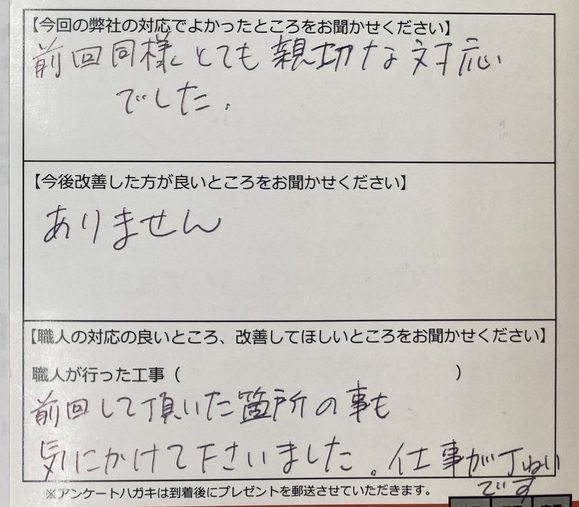 【今回の弊社の対応でよかったところをお聞かせください】
前回同様とても親切な対応
でした。
【今後改善した方が良いところをお聞かせください】
ありません
【職人の対応の良いところ、改善してほしいところをお聞かせください】
職人が行った工事（　　　　　　　　　　）
前回して頂いた箇所の事も
気にかけて下さいました。仕事が丁ねい
です
※アンケートハガキは到着後にプレゼントを郵送させていただきます。